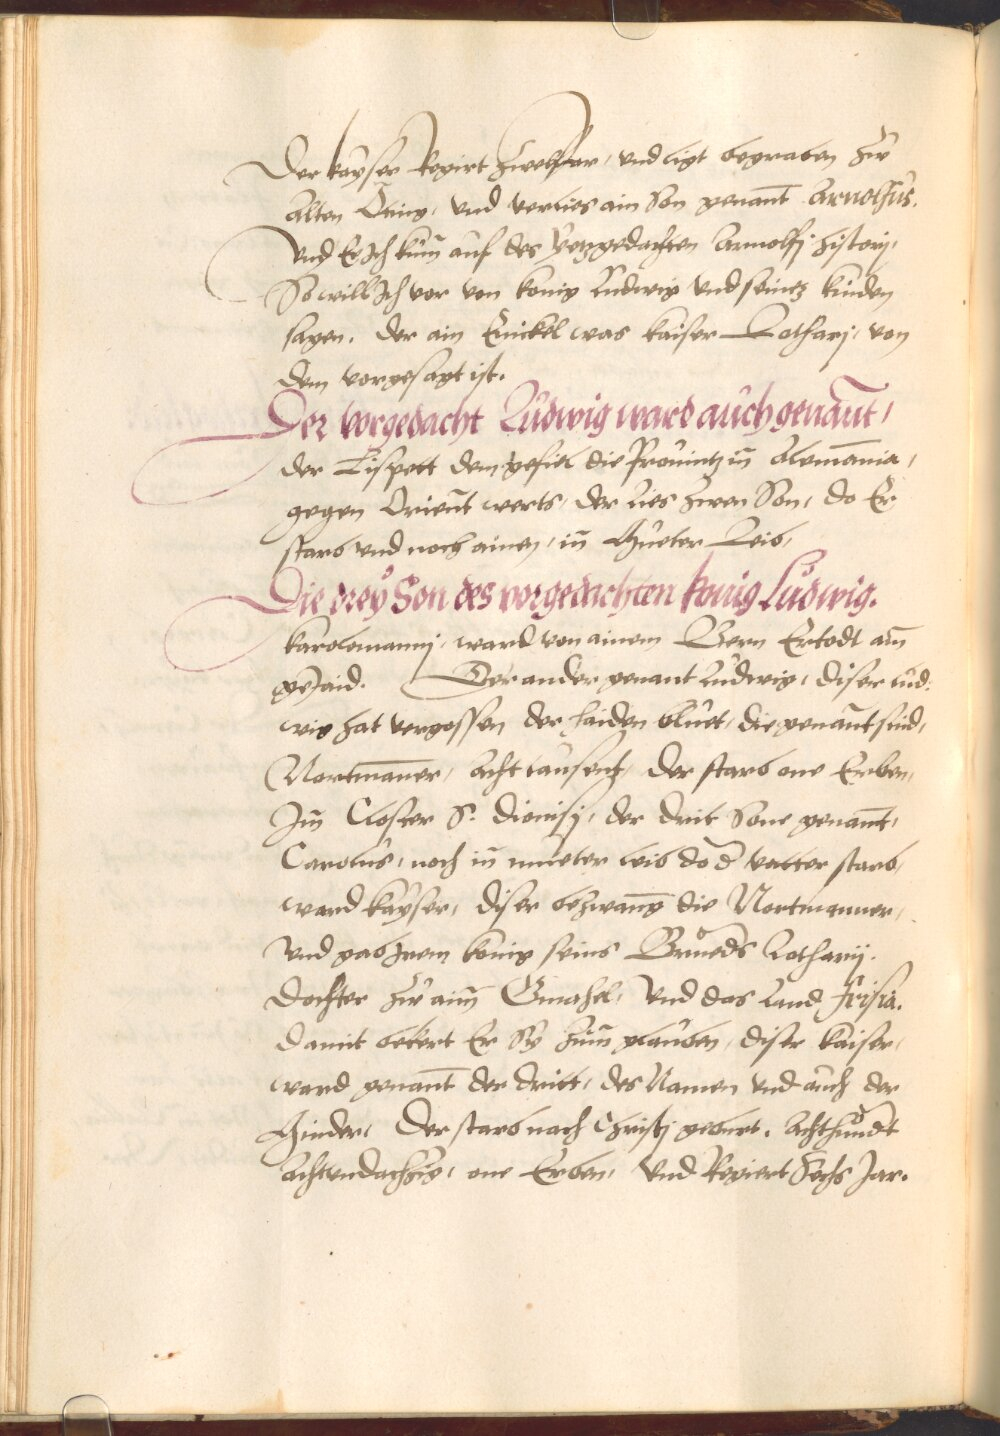 Der kayser Regirt zwelf Jar, vnd ligt begraben zu
Alten Oting, vnd verlies ain Son genant Arnolfus.
vnd Er Ich kum auf des yetzgedachten Arnolfj historj,
So will Ich vor von konig Ludwig vnd seinen kinden
sagen. der ain Enickel was kaiser Lotharj, von
dem vorgesagt ist.
Der vorgedacht Ludwig ward auch genant,
der dem gefiel die Prouintz in Alemania,
gegen Orient werts, der lies zwen Son, do Er
starb vnd noch ainen, in Mueter Leib,
Die drey Son des vorgedachten konig Ludwig.
karolomannj, ward von ainem Bern Ertodt am
gejaid. Der ander genant Ludwig, diser Lud:
wig hat vergossen der haiden bluet, die genant sind,
Nortmanner, acht tausent, der starb one Erben,
Im Closter S. Dionisij, der drit Sone genant,
Carolus, noch in mueter leib do d vatter starb,
ward kayser, diser bezwang die Nortmanner,
vnd gab Irem konig seins Brueders Lotharij.
dochter zu aim Gmahel, vnd das Land frisia.
damit bekert Er Sy zum glauben, diser kaiser,
ward genant der dritt, des Namen vnd auch der
Minder, Der starb nach Christj geburt. achthundert
achtvndachzig, one Erben, vnd Regiert Sechs Jar.